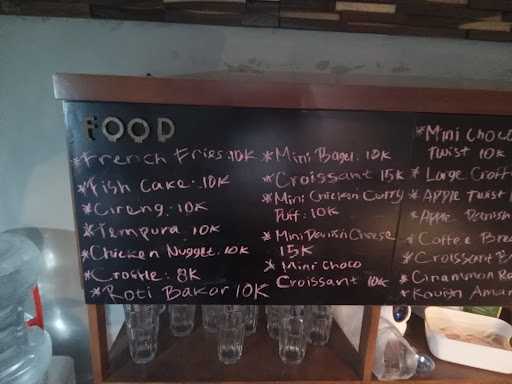 FOOD
*French Fries. 10K
*Fish Cake. 10K
*Cireng. 10K
*Tempura 10K
*Chicken Nugget. 10K
*Croffle: 8K
*Roti Bakar 10K
*Mini Bagel. 10K
*Croissant 15K
*Mini Chicken Curry
Puff. 10K
*Mini Danish Cheese
15K
*Mini Choco
Croissant 10K
*Mini Choco
Twist 10K
*Large
*Apple Twist
*Apple Danish
*Coffee
*Croissant
*Cinammon
*Kouign Aman